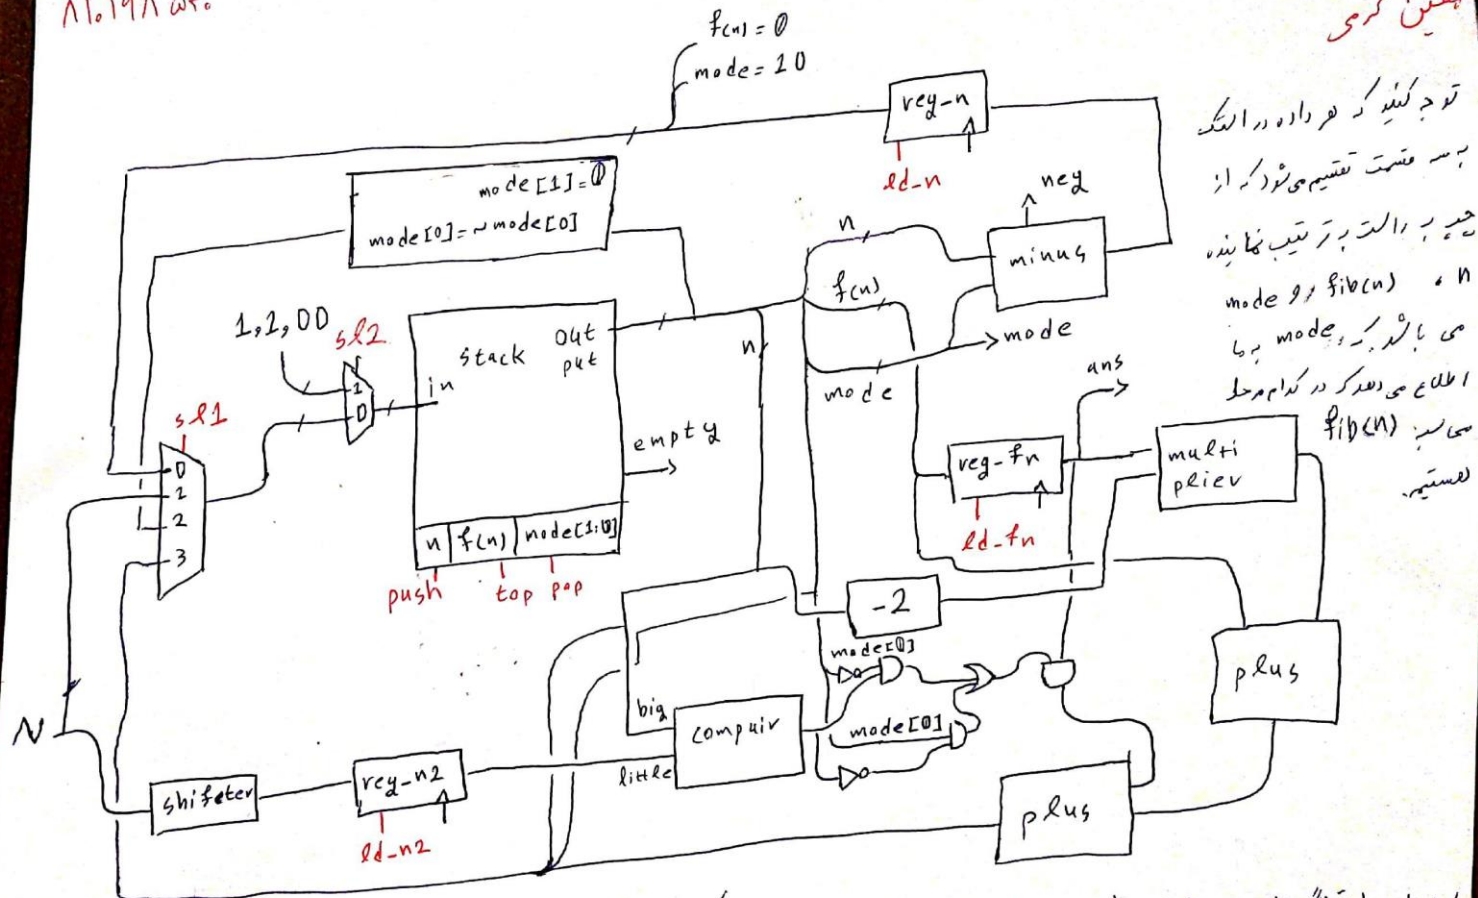 ۸۱۰۱۹۸
f(n) = 0
mode = 10
reg-n
ld-n
توجه کنید که هر داده در استک
به سه قسمت تقسیم می‌شود که از
چپ به راست به ترتیب نماینده
n ، fib(n) و mode
می باشد که mode به ما
اطلاع می دهد که در کدام مرحله
محاسبه fib(n)
هستیم.
mode[1]=0
mode[0]=~mode[0]
neg
n
minus
f(n)
mode
mode
1,1,00
sl2
1
0
in
stack
out
put
n
empty
n f(n) mode[1:0]
push top pop
sl1
0
1
2
3
ans
reg-fn
ld-fn
multi
plier
-2
plus
mode[0]
mode[0]
big
little
compair
N
shifeter
reg-n2
ld-n2
plus